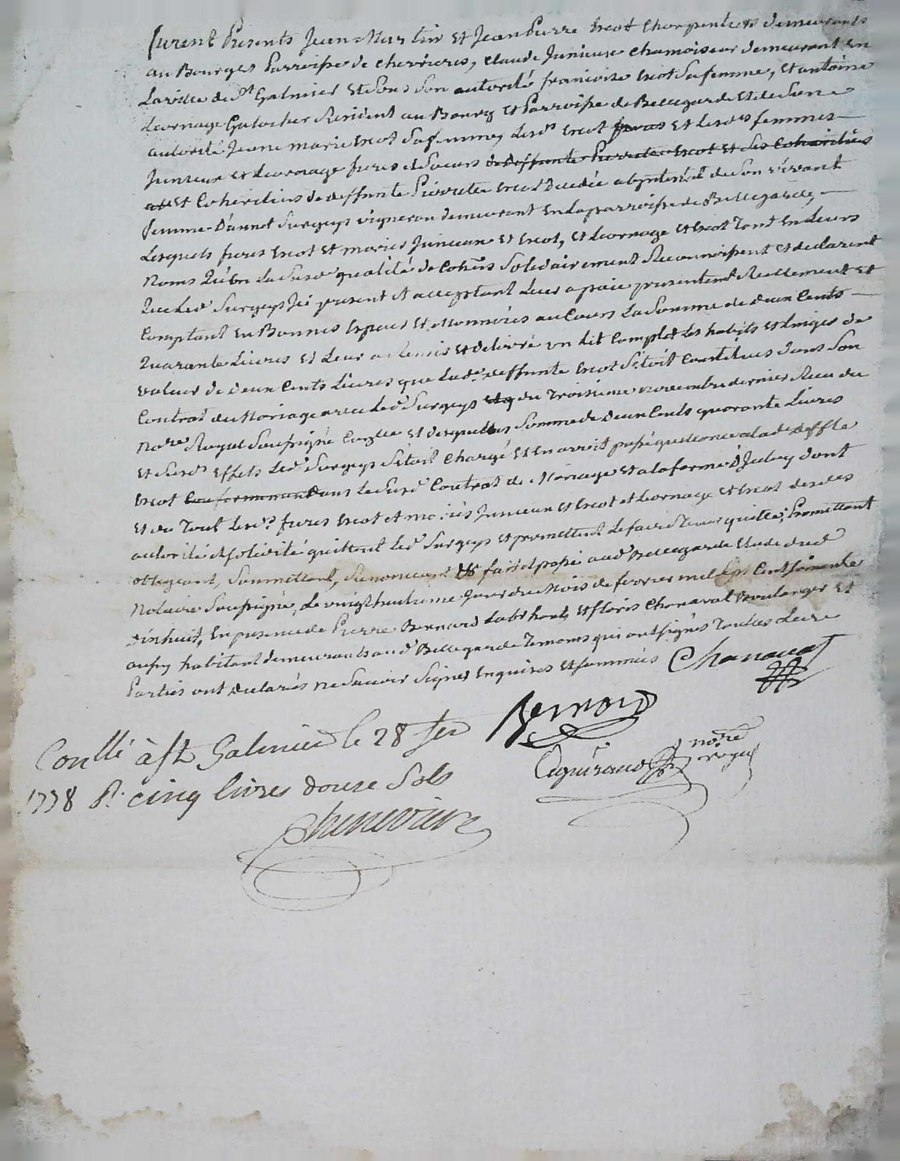 furent Présents Jean Martin Et Jean Pierre Escot Charpentiers demeurants
au Bourg et Parroisse de Chevrieres, Claude Junieux chamoiseur demeurant En
La ville de St Galmier Et Sous Son autorité françoise Escot Sa femme, Et antoine
Léornage Galocher Résident au Bourg Et Parroisse de Bellegarde Et de Sienne
autorité Jeanne marie Escot Sa femme, Lesds Escot Et Lesdes femmes
Junieux et Léornage freres et Soeurs de deffunte Pierrette Escot Et Ses Cohéritiers
Et Cohéritiers de deffunte Pierrette Escot Décédée abintestat de Son vivant
femme D'annet Surgeys vigneron demeurant En La parroisse de Bellegarde,
Lesquels freres Escot Et mariés Junieux Et Escot, Et Léornage Et Escot Tous En Leurs
Noms Qu'En La Susde qualité de Cohers Solidairement Reconnoissent Et déclarent
Que Led. Surgeys Ici présent Et acceptant Leur a païé présentement Réellement Et
Comptant En Bonnes Espèces Et Monnoies au Cours La Somme de deux Cents
Quarante Livres Et Leur a Remis Et délivré un Lit Complet Les habits Et Linges de
valeur de deux Cents Livres que Lade deffunte Escot S'étoit Constitués dans Son
Contrat de Mariage avec Led. Surgeys du Troisieme novembre dernier Reçu du
Nore Royal Soussigné Et desquels Somme de deux Cents quarante Livres
Et Susds Effets Led. Surgeys S'étoit Chargé Et En avoit passé quittance a lad. deffte
Escot Conformement dans Le Susd. Contrat de Mariage Et a la forme D'Iceluy dont
Et du Tout Lesds freres Escot Et mariés Junieux Et Escot et Léornage Et Escot desdes
autorité Et Solidité quittent Led. Surgeys Et promettent Le faire Tenir quitte, Promettant
obligeant, Soumettant, Renonceant fait Et passé aud. Bellegarde Etude dud.
Notaire Soussigné, Le vingt huitieme Jour du Mois de fevrier mil Sept Cent Soixante
Dixhuit, En présence de Pierre Bernard Et floris Chanavat Boulanger Et
habitant demeurants aud. Bellegarde Temoins qui ont Signés Toutes Leurs
Parties ont Déclarés ne Sçavoir Signer Enquises Et Sommées Chanavat
Bernard
Conllé à St Galmier le 28 fev
nore royal
1778 R. cinq livres douze Sols
Chenevier